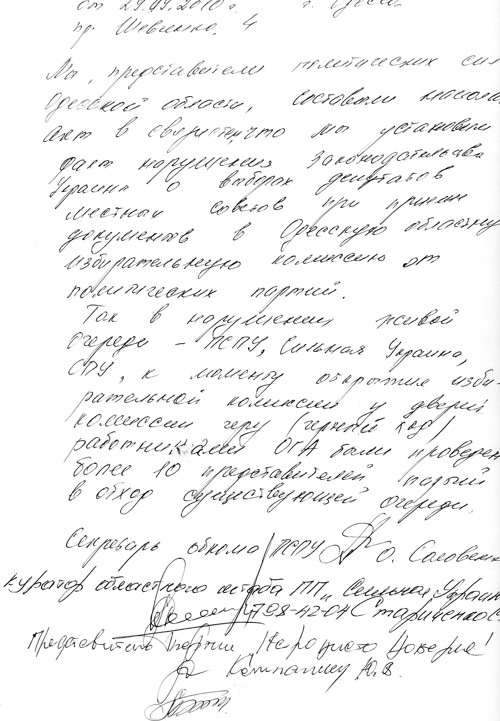 от 29.09.2010 г. г. Одесса
пр. Шевченко, 4
Мы, представители политических сил
Одесской области, составили настоя
акт в том, что мы установили
факт нарушения Законодательства
Украины о выборах депутатов
местных советов при прием
документов в Одесскую областну
избирательную комиссию от
политических партий.
Так в нарушении живой
очереди - ПСПУ, Сильная Украина,
СПУ, к моменту открытие изби-
рательной комиссии у дверей
комиссии через (черный ход)
работниками ОГА были проведен
более 10 представителей партий
в обход существующей очереди.
Секретарь обкома ПСПУ О. Соловенк
куратор областного штаба ПП "Сильная Украина
798-42-04 Стариченко С.
Представитель партии "Народного доверие"
Ю.В.